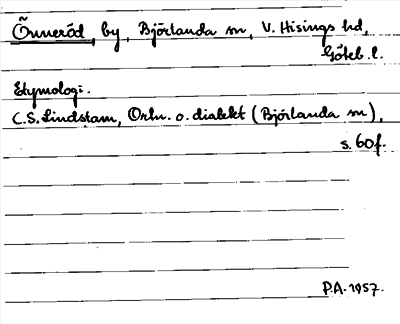 Önneröd, by, Björlanda sn, V. Hisings hd,
Göteb. l.
Etymologi.
C.S. Lindstam, Ortn. o. dialekt (Björlanda sn),
s. 60f.
P.A. 1957.